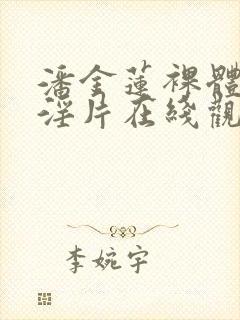 潘金蓮裸體
淫片在綫觀
李婉宇